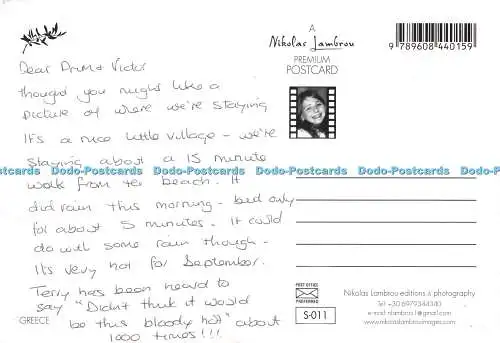 Dear Drina Victor
thought you might like a
picture of where we're staying
It's a nice little village - we're
staying about a 15 minute
walk from the beach. It
did rain this morning - but only
for about 5 minutes. It could
do with some rain though -
It's very hot for September.
Terry has been heard to
say "Didn't think it would
be this bloody hot" about
1000 times!!!
GREECE
A
Nikolas Lambrou
PREMIUM
POSTCARD
9 789608 440159
Dodo-Postcards Dodo-Postcards Dodo-Postcards Dodo-Postcards Dodo-Postcards Dodo-Postcards
POST OFFICE
PREFERRED
S-011
Nikolas Lambrou editions & photography
Tel +30 6979344340
e-mail nlambrou1@gmail.com
www.nikolaslambrouimages.com